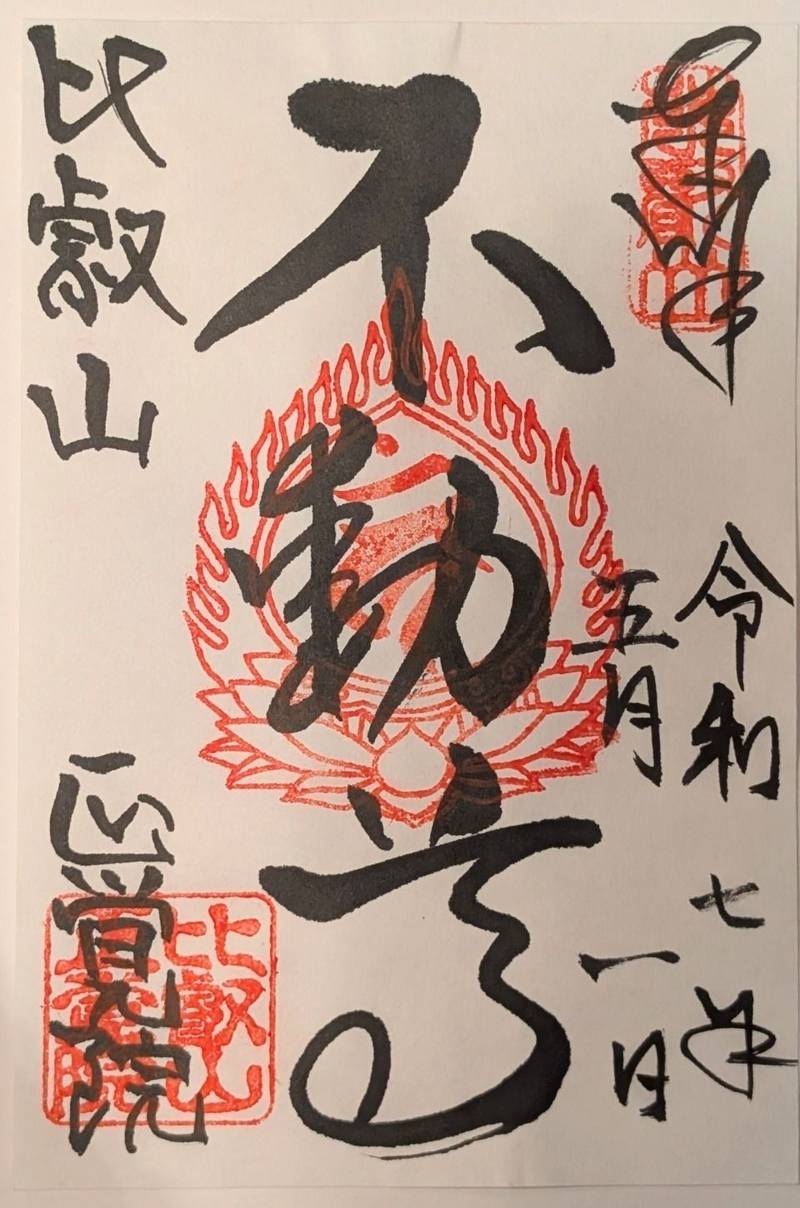 奉拝
令和七年
五月一日
不動尊
比叡山
正覚院
比叡山
正覚院